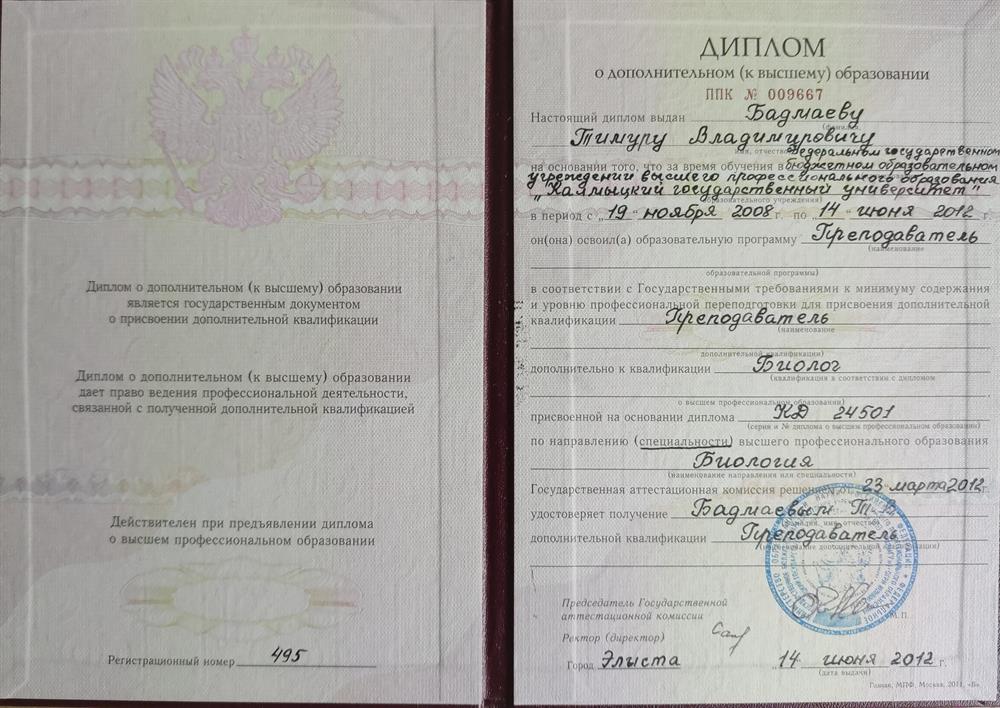 Диплом о дополнительном (к высшему) образовании
является государственным документом
о присвоении дополнительной квалификации
Диплом о дополнительном (к высшему) образовании
дает право ведения профессиональной деятельности,
связанной с полученной дополнительной квалификацией
Действителен при предъявлении диплома
о высшем профессиональном образовании
Регистрационный номер 495
ДИПЛОМ
о дополнительном (к высшему) образовании
ППК № 009667
Настоящий диплом выдан Бадмаеву
Тимуру Владимировичу
Федеральном государственном
на основании того, что за время обучения в бюджетном образовательном
учреждении высшего профессионального образования
"Калмыцкий государственный университет"
образовательного учреждения)
в период с „19“ ноября 2008 г. по „14“ июня 2012 г.
он(она) освоил(а) образовательную программу Преподаватель
(наименование
образовательной программы)
в соответствии с Государственными требованиями к минимуму содержания
и уровню профессиональной переподготовки для присвоения дополнительной
квалификации Преподаватель
(наименование
дополнительной квалификации)
дополнительно к квалификации Биолог
(квалификация в соответствии с дипломом
о высшем профессиональном образовании)
присвоенной на основании диплома КД 24501
(серия и № диплома о высшем профессиональном образовании)
по направлению (специальности) высшего профессионального образования
Биология
(наименование направления или специальности)
Государственная аттестационная комиссия решением от 23 марта 2012 г.
удостоверяет получение Бадмаевым Т.В.
(фамилия, имя, отчество)
дополнительной квалификации Преподаватель
(наименование дополнительной квалификации)
Председатель Государственной
аттестационной комиссии
М.П.
Ректор (директор)
Город Элиста „14“ июня 2012 г.
(дата выдачи)
Гознак, МПФ, Москва, 2011, «В».